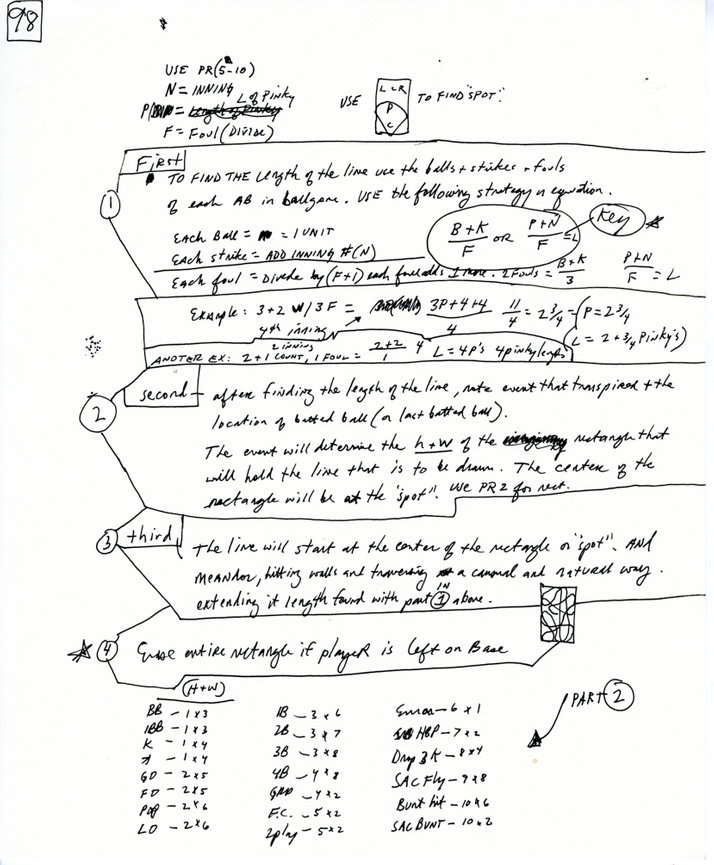 98
USE PR(5-10)
N = INNING
L of Pinky
P = Length of Pinky
F = Foul (Divide)
USE
L C R
P
C
TO FIND "SPOT".
First
TO FIND THE Length of the line use the balls + strikes + fouls
1
of each AB in ballgame. USE the following strategy or equation.
Each Ball = = 1 UNIT
Each strike = ADD INNING #(N)
B+K/F OR P+N/F = L
Key
Each foul = Divide by (F+1) each foul adds 1 more. 2 Fouls = B+K/3
P+N/F = L
Example: 3+2 W/ 3F = 3P+4+4/4 11/4 = 2 3/4 = (P = 2 3/4
4th inning
L = 2 + 3/4 Pinky's)
2 inning
ANOTER EX: 2+1 COUNT, 1 FOUL = 2+2/1 4 L = 4P's 4 pinky lengths
2
second - after finding the length of the line, note event that transpired + the
location of batted ball (or last batted ball).
The event will determine the h+W of the imaginary rectangle that
will hold the line that is to be drawn. The center of the
rectangle will be at the "spot". use PR2 for rect.
3
third
The line will start at the center of the rectangle or "spot". AND
meander, hitting walls and traversing in a casual and natural way.
extending it length found with part 1 above.
4
Erase entire rectangle if player is left on Base
(H+W)
PART 2
BB - 1x3
IBB - 1x3
K - 1x4
ꓘ - 1x4
GO - 2x5
FO - 2x5
POP - 2x6
LO - 2x6
1B - 3x6
2B - 3x7
3B - 3x8
4B - 4x8
GRD - 4x2
F.C. - 5x2
2play - 5x2
Error - 6x1
HBP - 7x2
Drop 3K - 8x4
SAC Fly - 9x8
Bunt hit - 10x6
SAC BUNT - 10x2